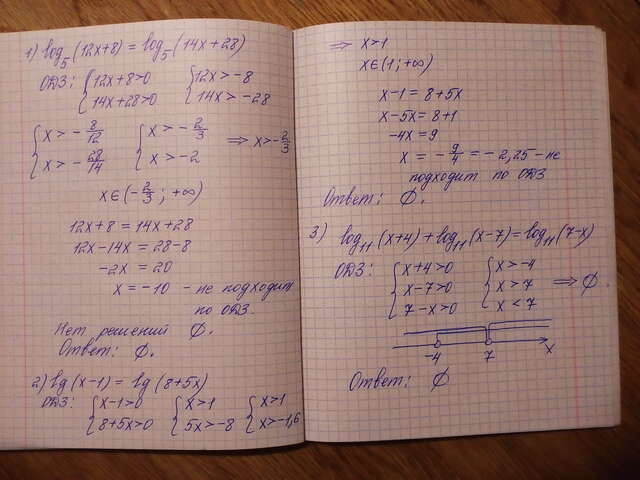 1) log₅(12x+8) = log₅(14x+28)
ОДЗ: { 12x+8>0 { 12x > -8
14x+28>0 14x > -28
{ x > -8/12 { x > -2/3 ⇒ x > -2/3
x > -28/14 x > -2
x∈(-2/3; +∞)
12x+8 = 14x+28
12x-14x = 28-8
-2x = 20
x = -10 - не подходит
по ОДЗ.
Нет решений Ø.
Ответ: Ø.
2) lg(x-1) = lg(8+5x)
ОДЗ: { x-1>0 { x>1 { x>1
8+5x>0 5x>-8 x>-1,6
⇒ x>1
x∈(1; +∞)
x-1 = 8+5x
x-5x = 8+1
-4x = 9
x = -9/4 = -2,25 - не
подходит по ОДЗ
Ответ: Ø.
3) log₁₁(x+4) + log₁₁(x-7) = log₁₁(7-x)
ОДЗ: { x+4>0 { x>-4
x-7>0 x>7 ⇒ Ø.
7-x>0 x<7
-4 7 x
Ответ: Ø